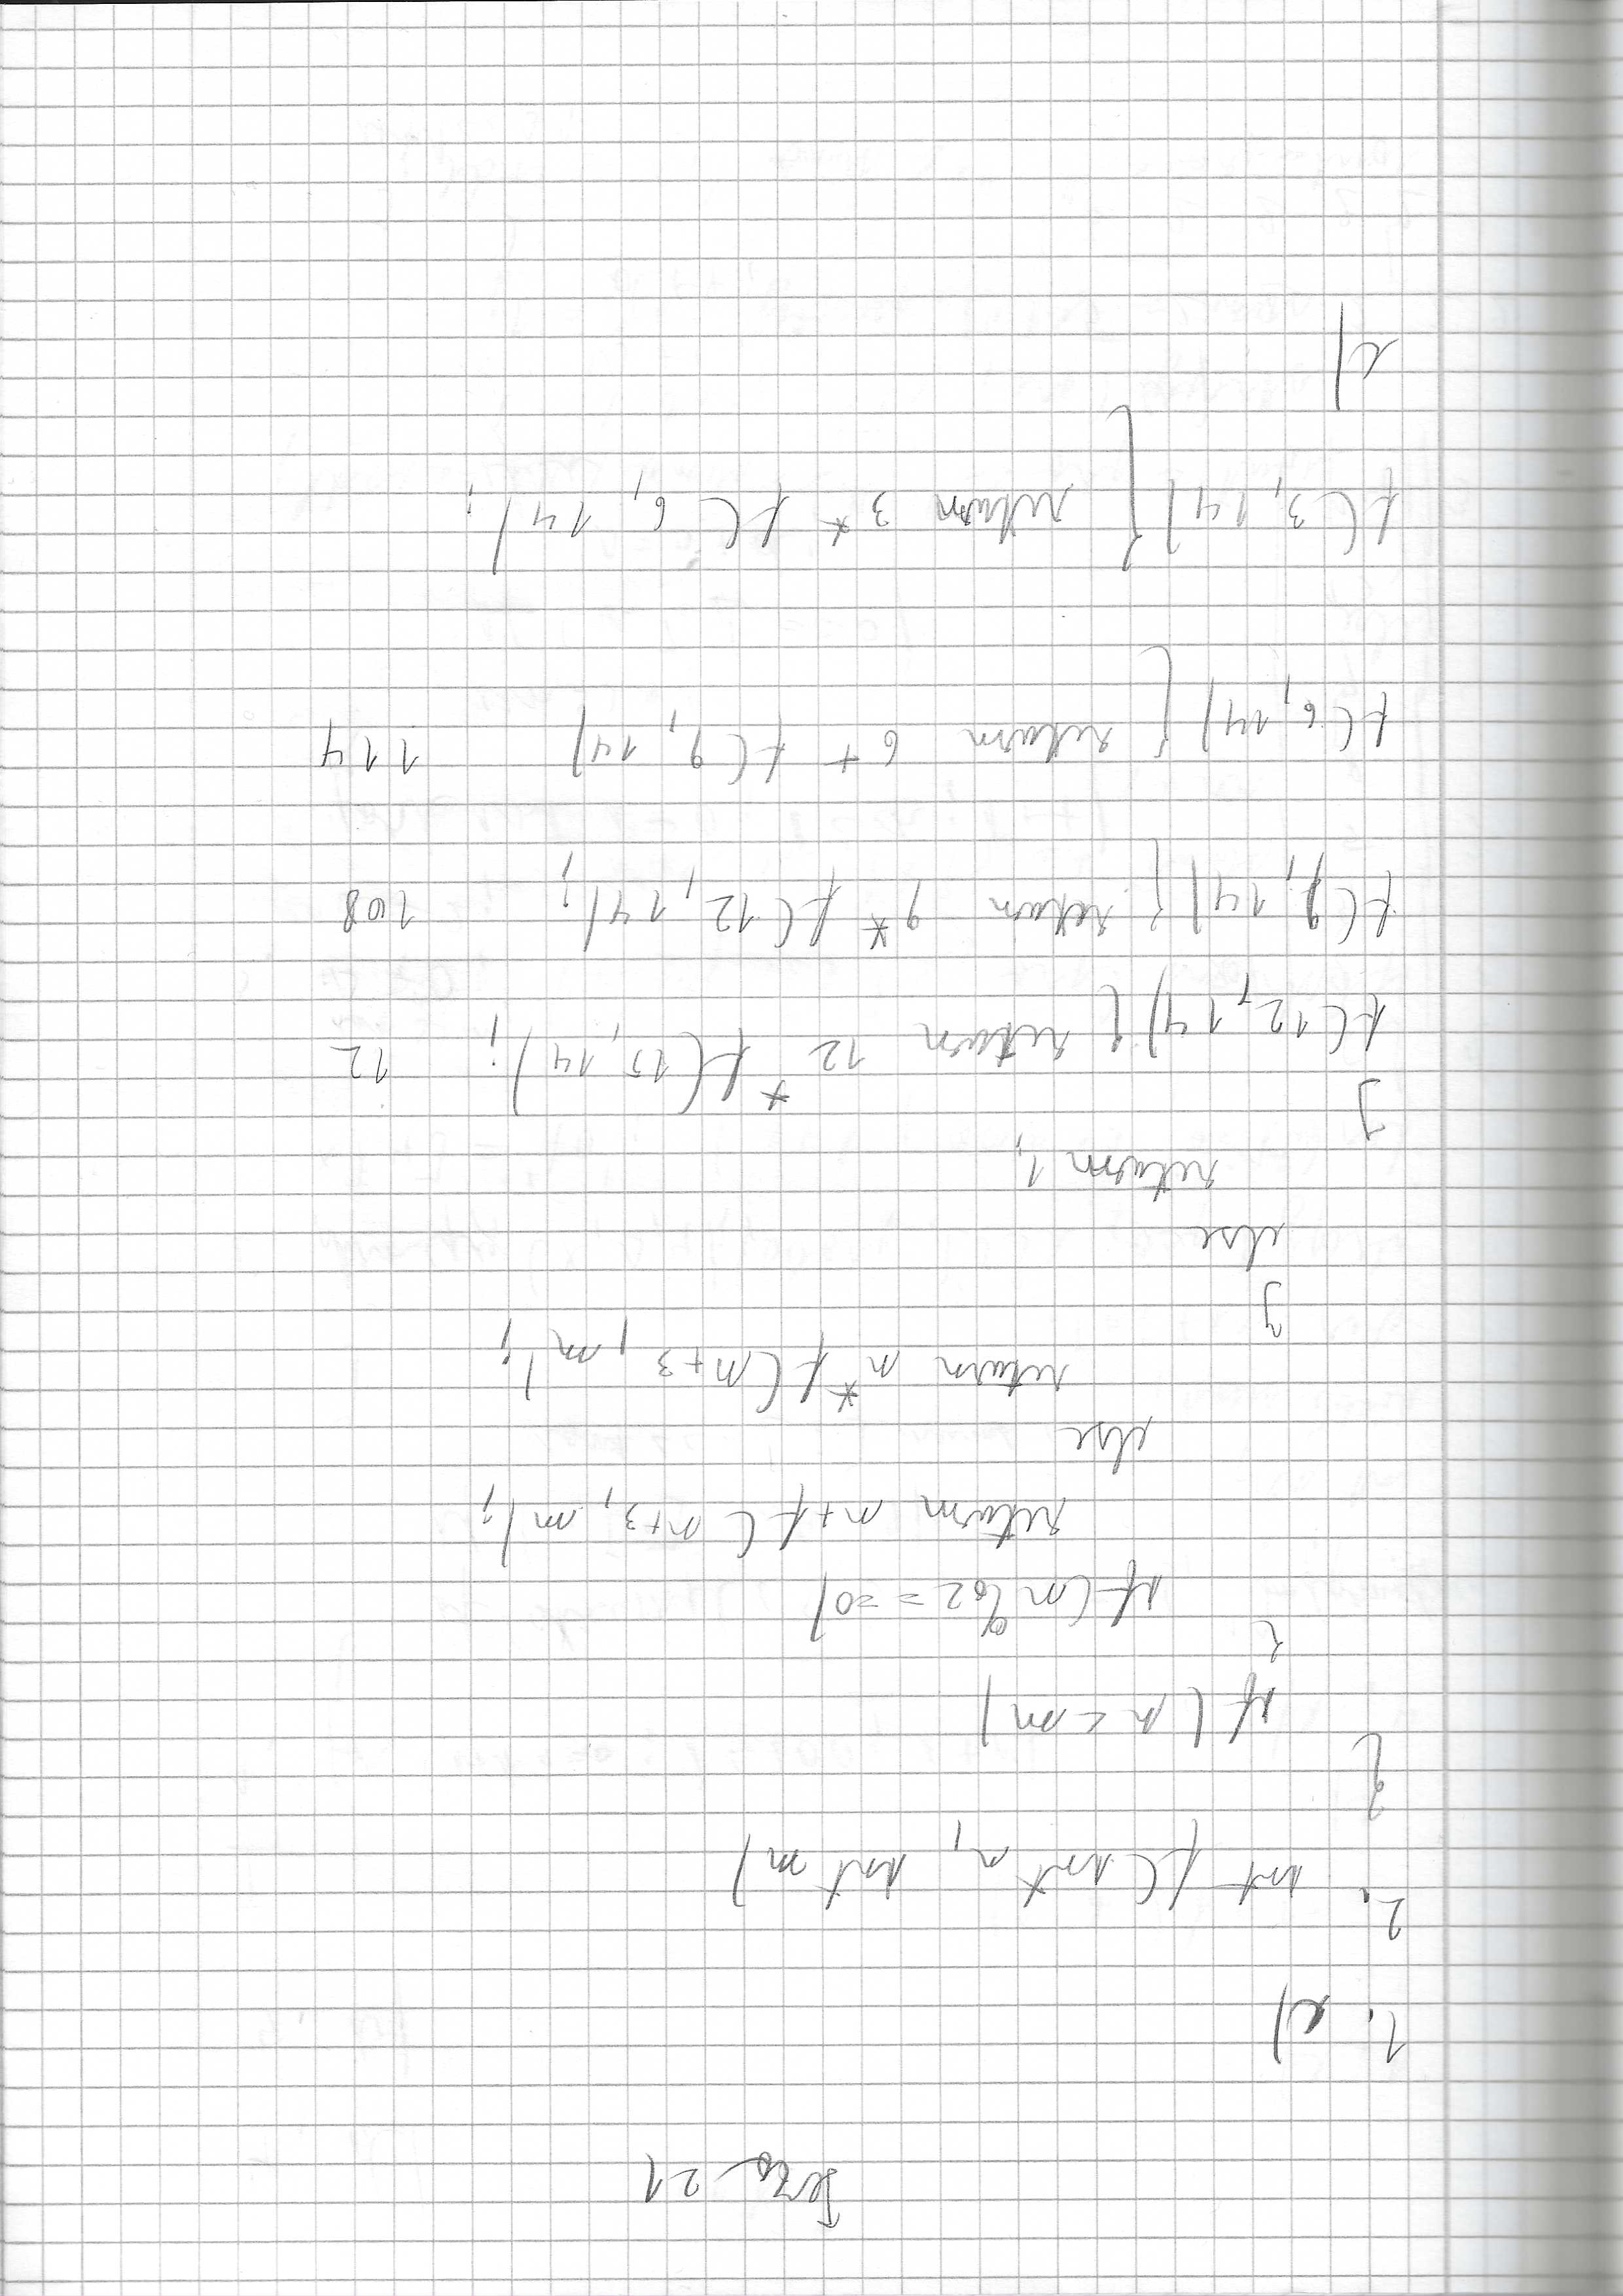 21
1. c)
2. int f(int n, int m)
{
if (n < m)
{
if (n%2==0)
return n+f(n+3, m);
else
return n*f(n+3, m);
}
else
return 1;
}
f(12,14){ return 12 * f(15,14); 12
f(9,14){ return 9* f(12,14); 108
f(6,14){ return 6+ f(9,14) 114
f(3,14){ return 3 * f(6,14);
c)